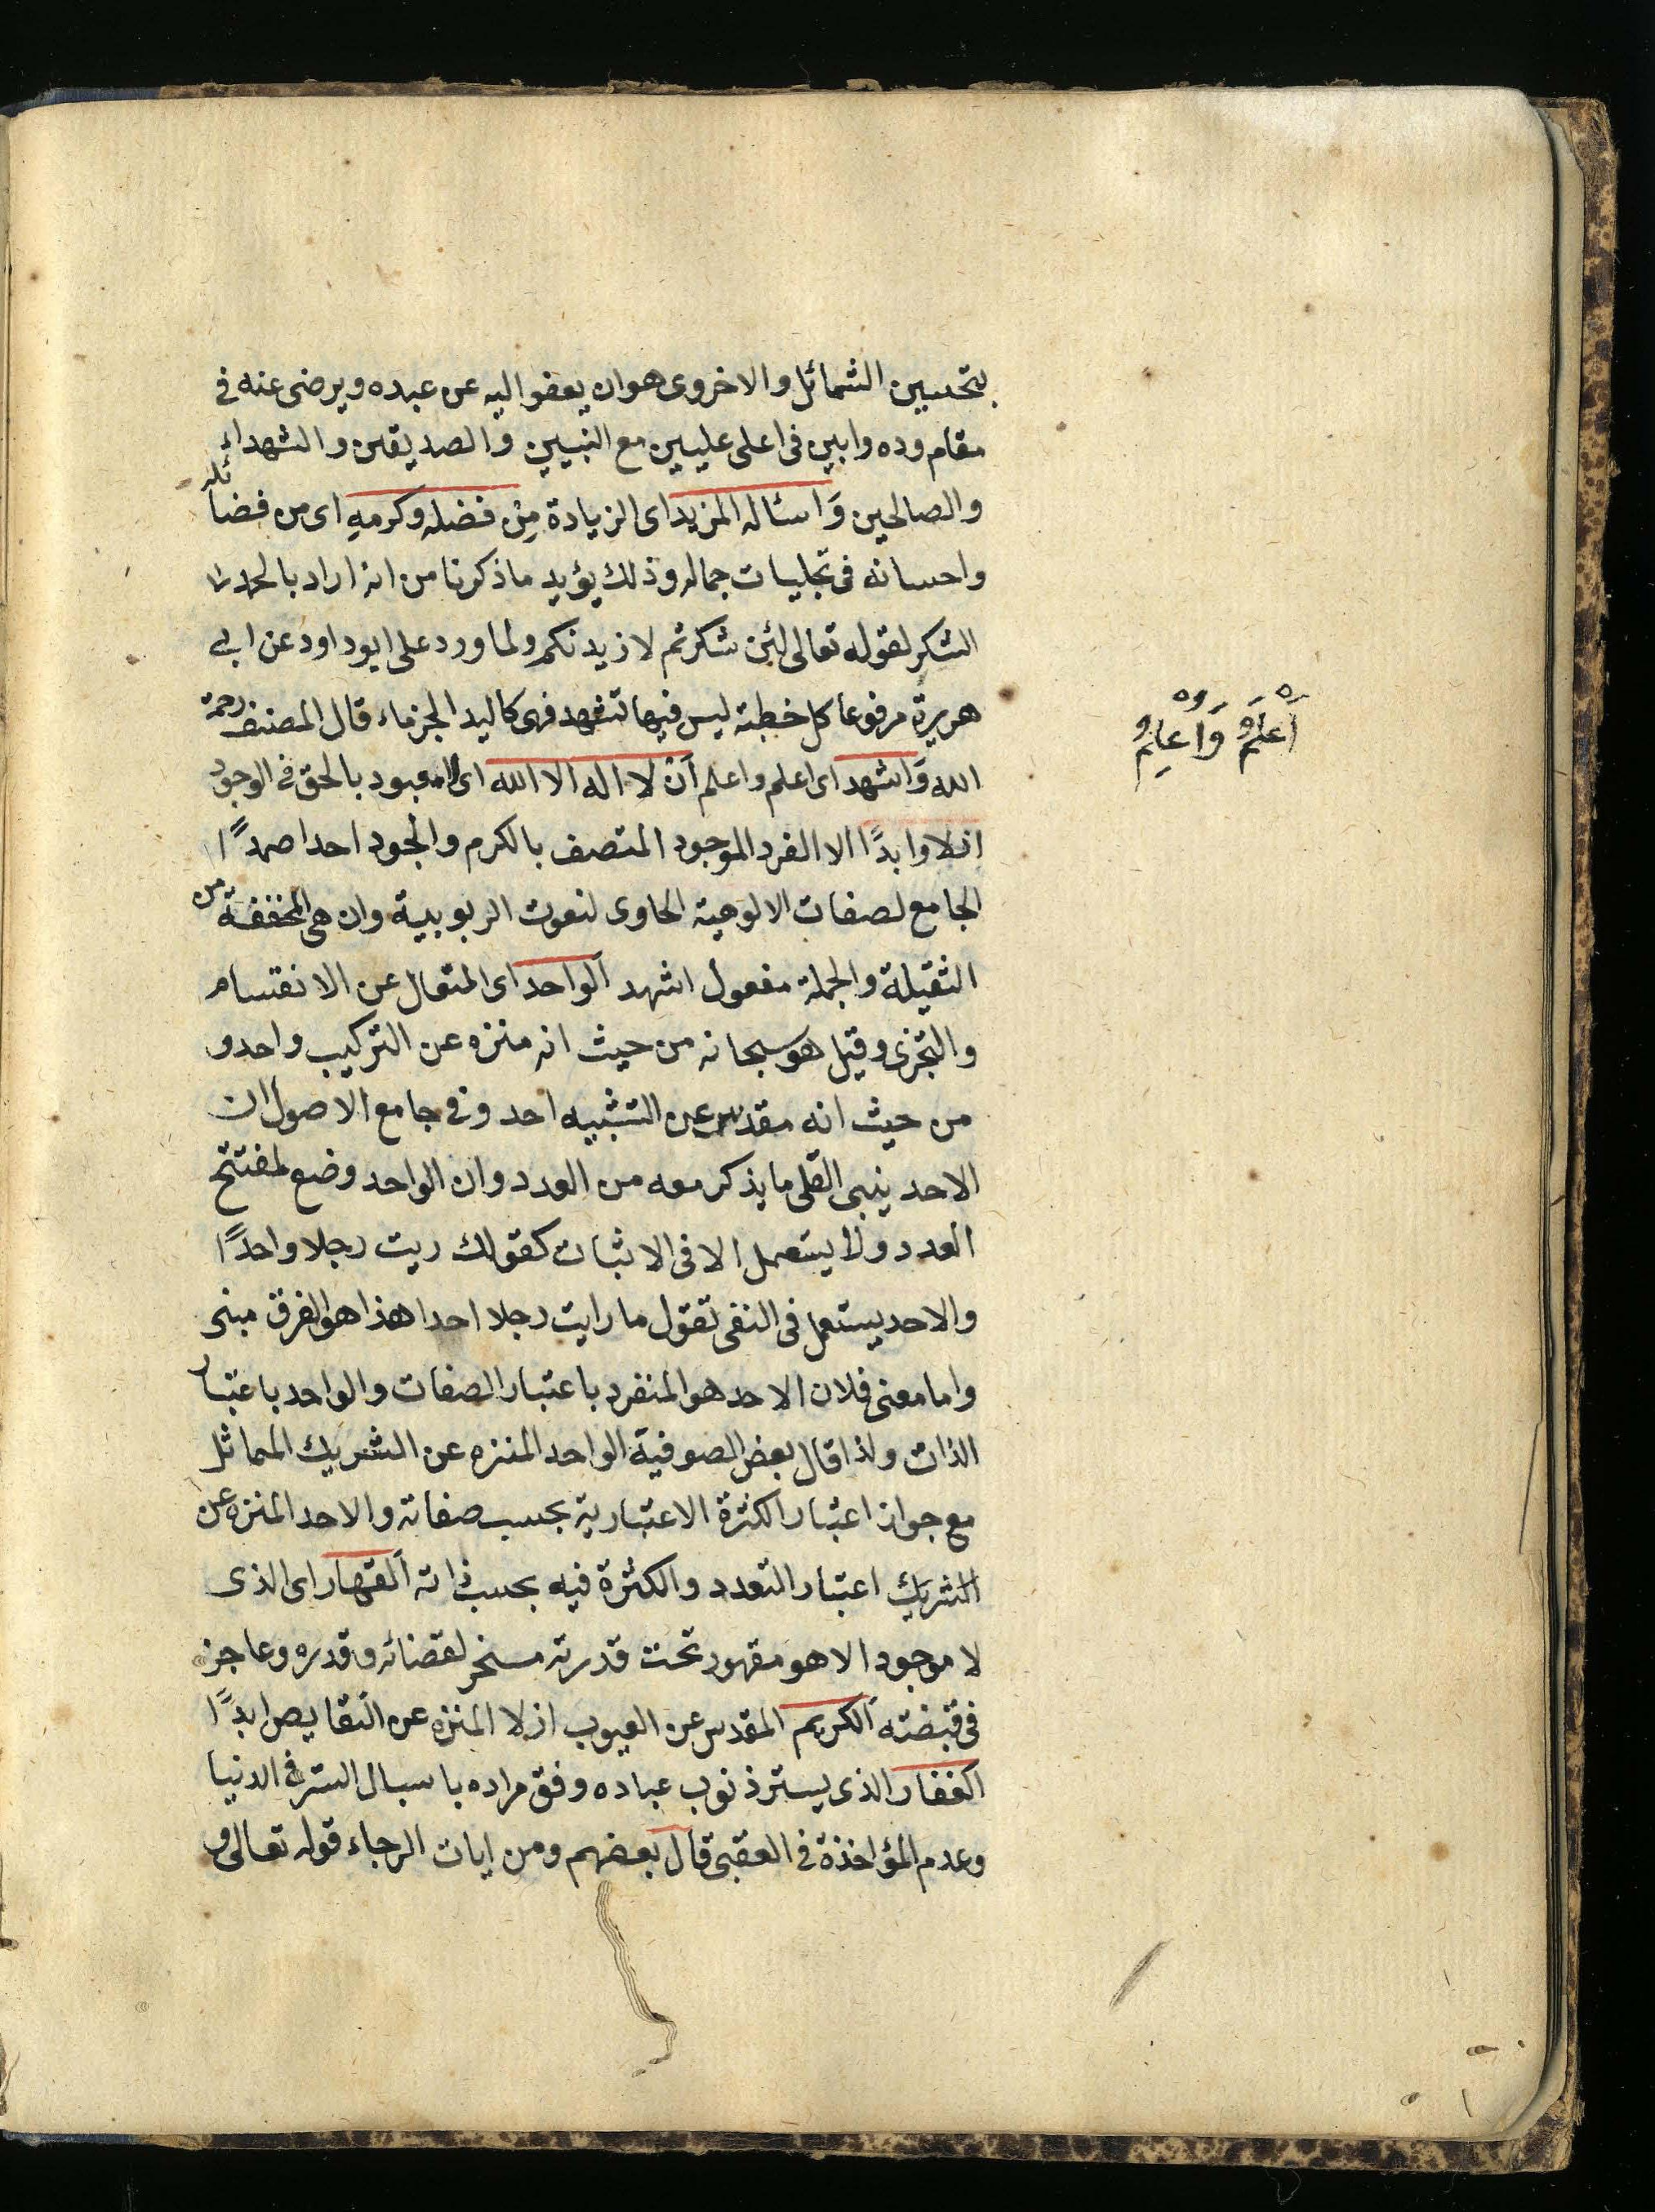 بتحسين الشمائل والاخروى هو ان يعفو اليه عن عبده ويرضى عنه فى
مقام وده وابين فى اعلى عليين مع النبيين والصديقين والشهداء
والصالحين وَاسئاله المزيد اى الزيادة مِنْ فضله وكرمهِ اى من فضائله
واحسانه فى تجليات جماله وذلك يؤيد ما ذكرنا من انه اراد بالحمد
الشكر لقوله تعالى لئن شكرتم لازيدنكم ولما ورد على ابو داود عن ابى
هريرة مرفوعا كل خطبة ليس فيها تشهد فهى كاليد الجزماء قال المصنف رحمة
الله وَاشهد اى اعلم واعلم اَنْ لا اله الا الله اى لا معبود بالحق فى الوجود
ازلا وابدًا الا الفرد الموجود المتصف بالكرم والجود احدا صمدًا
الجامع لصفات الالوهية الحاوى لنعوت الربوبية وان هى المخففة من
الثقيلة والجملة مفعول اشهد اَلواحد اى المتعال عن الانقسام
والتجزى وقيل هو سبحانه من حيث انه منزه عن التركيب واحد و
من حيث انه مقدس عن التشبيه احد وفى جامع الاصول ان
الاحد ينبى القلى ما يذكر معه من العدد وان الواحد وضع لمفتتح
العدد ولا يستعمل الا فى الاثبات كقولك ريت رجلا واحدًا
والاحد يستعمل فى النفى تقول ما رايت رجلا احدا هذا هو الفرق مبنى
واما معنى فلان الاحد هو المنفرد باعتبار الصفات والواحد باعتبار
الذات ولذا قال بعض الصوفية الواحد المنزه عن الشريك المماثل
مع جواز اعتبار الكثرة الاعتبارية بحسب صفاته والاحد المنزه عن
الشريك اعتبار التعدد والكثرة فيه بحسب ذاته اَلقهار اى الذى
لا موجود الا هو مقهور تحت قدرته مسخر لقضائه وقدره وعاجز
فى قبضته اَلكريم المقدس عن العيوب ازلا المنزه عن النقايص ابدًا
الغفار الذى يستر ذنوب عباده وفق مراده باسبال الستر فى الدنيا
وعدم المؤاخذة فى العقبى قال بعضهم ومن ايات الرجاء قوله تعالى و
اَعْلَمُ وَاُعْلِمُ